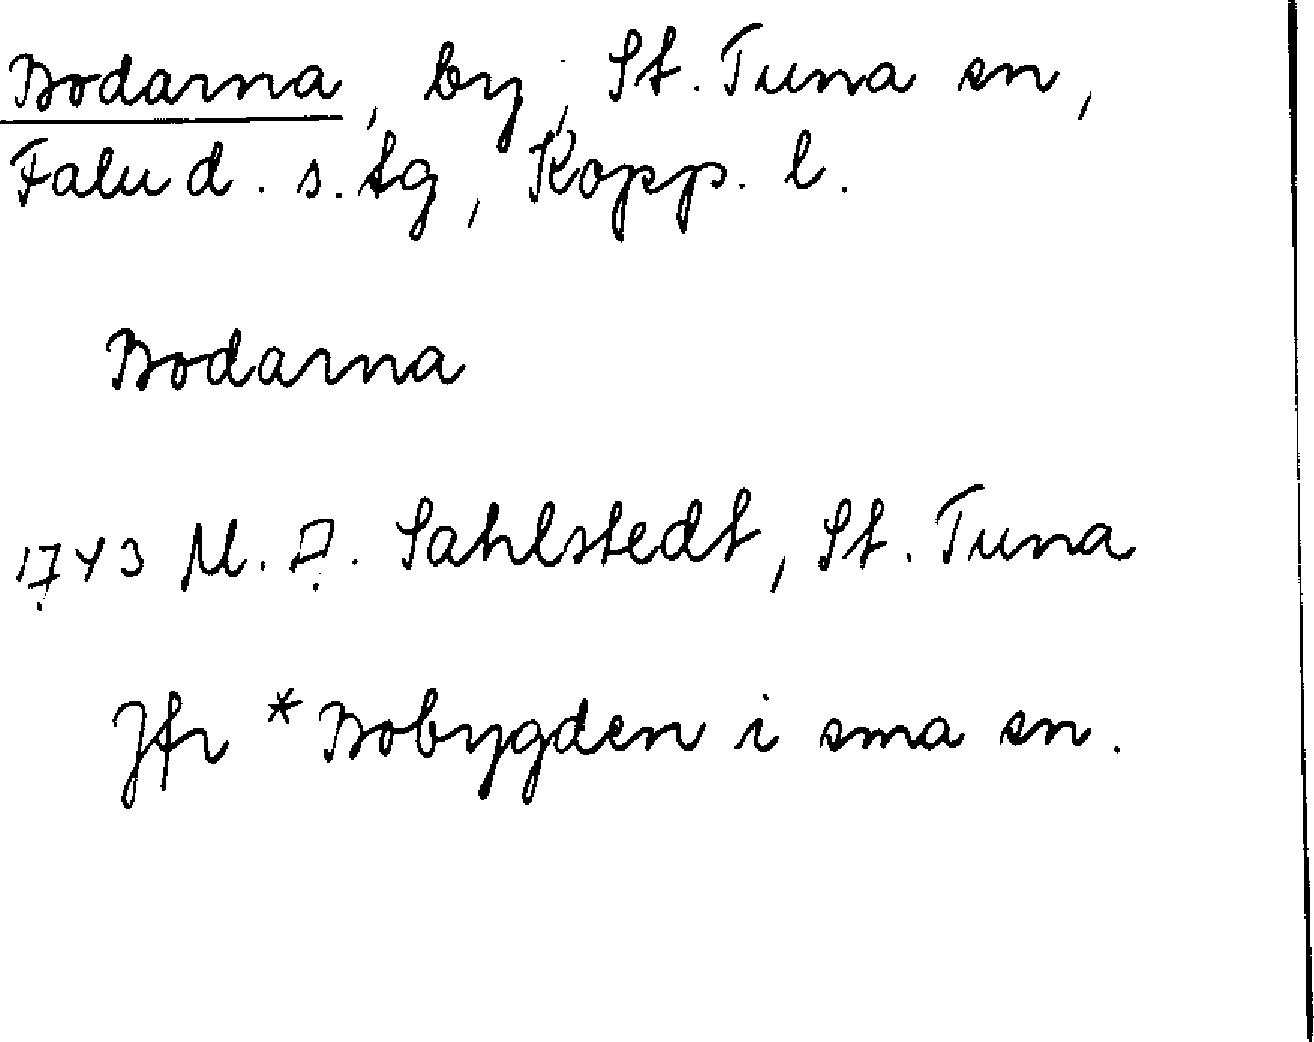 Bodarna, by, St. Tuna sn,
Falu d. s. tg, Kopp. l.
Bodarna
1743 M. Sahlstedt, St. Tuna
Jfr *Bobygden i sma sn.